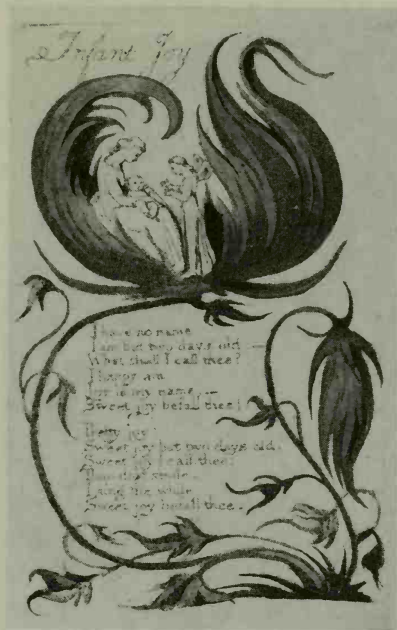 Infant Joy
I have no name
I am but two days old.—
What shall I call thee?
I happy am
Joy is my name,—
Sweet joy befall thee!
Pretty joy!
Sweet joy but two days old.
Sweet joy I call thee:
Thou dost smile.
I sing the while
Sweet joy befall thee.